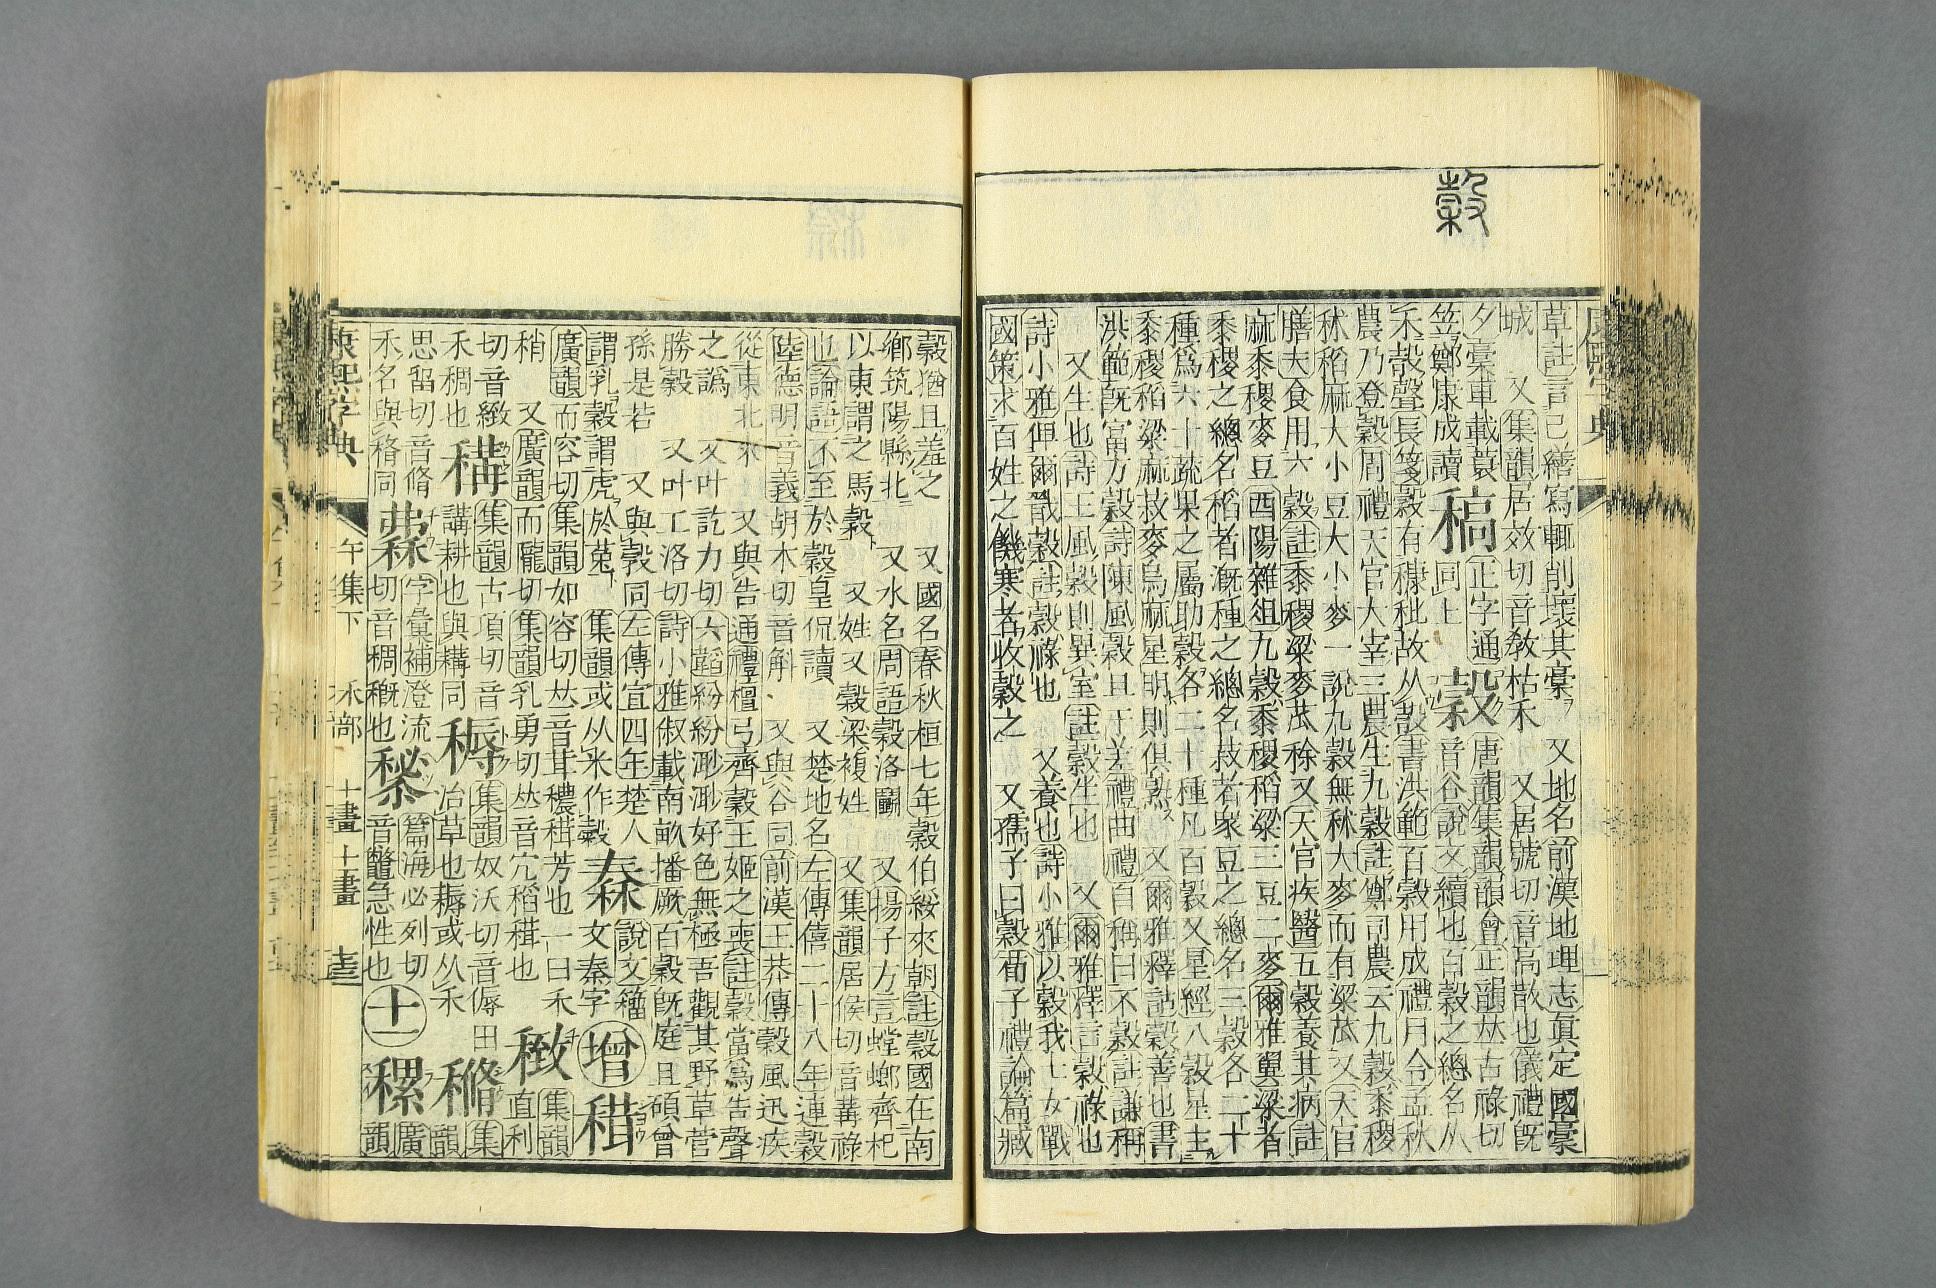 穀
草註言已繕寫輒削壞其稾 又地名前漢地理志眞定國稾
城 又集韻居效切音敎枯禾 又居號切音高散也儀禮旣
夕稾車載蓑 唐韻集韻韻會正韻𠀤古祿切
笠鄭康成讀 稿 正字通 同上 穀 音谷說文續也百穀之總名从
禾㱿聲長箋㱿有稂秕故从㱿書洪範百穀用成禮月令孟秋
農乃登穀周禮天官大宰三農生九穀註鄭司農云九穀黍稷
秫稻麻大小豆大小麥一說九穀無秫大麥而有粱苽又天官
膳夫食用六穀註黍稷粱麥苽稌又天官疾醫五穀養其病註
麻黍稷麥豆酉陽雜俎九穀黍稷稻粱三豆二麥爾雅翼粱者
黍稷之總名稻者漑種之總名菽者衆豆之總名三穀各二十
種爲六十蔬果之屬助穀各二十種凡百穀又星經八穀星主
黍稷稻粱麻菽麥烏麻星明則俱熟 又爾雅釋詁穀善也書
洪範旣富方穀詩陳風穀旦于差禮曲禮自稱曰不穀註謙稱
又生也詩王風穀則異室註穀生也 又爾雅釋言穀祿也
詩小雅俾爾戩穀註穀祿也 又養也詩小雅以穀我士女戰
國策求百姓之饑寒者收穀之 又孺子曰穀荀子禮論篇臧
穀猶且羞之 又國名春秋桓七年穀伯綏來朝註穀國在南
鄉筑陽縣北 又水名周語穀洛鬭 又揚子方言螳螂齊杞
以東謂之馬穀 又姓又穀梁複姓 又集韻居候切音冓祿
也論語不至於穀皇侃讀 又楚地名左傳僖二十八年連穀
陸德明音義胡木切音斛 又與谷同前漢王莽傳穀風迅疾
從東北來 又與告通禮檀弓齊穀王姬之喪註穀當爲告聲
之譌 又叶訖力切六韜紛紛渺渺好色無極吾觀其野草菅
勝穀 又叶工洛切詩小雅俶載南畝播厥百穀旣庭且碩曾
孫是若 又與㝅同左傳宣四年楚人
謂乳穀謂虎於菟 集韻或从米作𥽿 秦 說文籀文秦字 增 䅖 集韻
廣韻而容切集韻如容切𠀤音茸穠䅖芳也一曰禾
稍 又廣韻而隴切集韻乳勇切𠀤音宂稻䅖也 緻 直利
切音緻 構 集韻古項切音講耕也與耩同 槈 集韻奴沃切音傉田
禾稠也 冶草也耨或从禾 𥡦 集韻
思留切音脩 字彙補澄流切音稠穊也 篇海必列切音鼈急性也 十一 䅹 廣韻
禾名與䅎同
康熙字典 午集下 禾部 十畫 十一畫